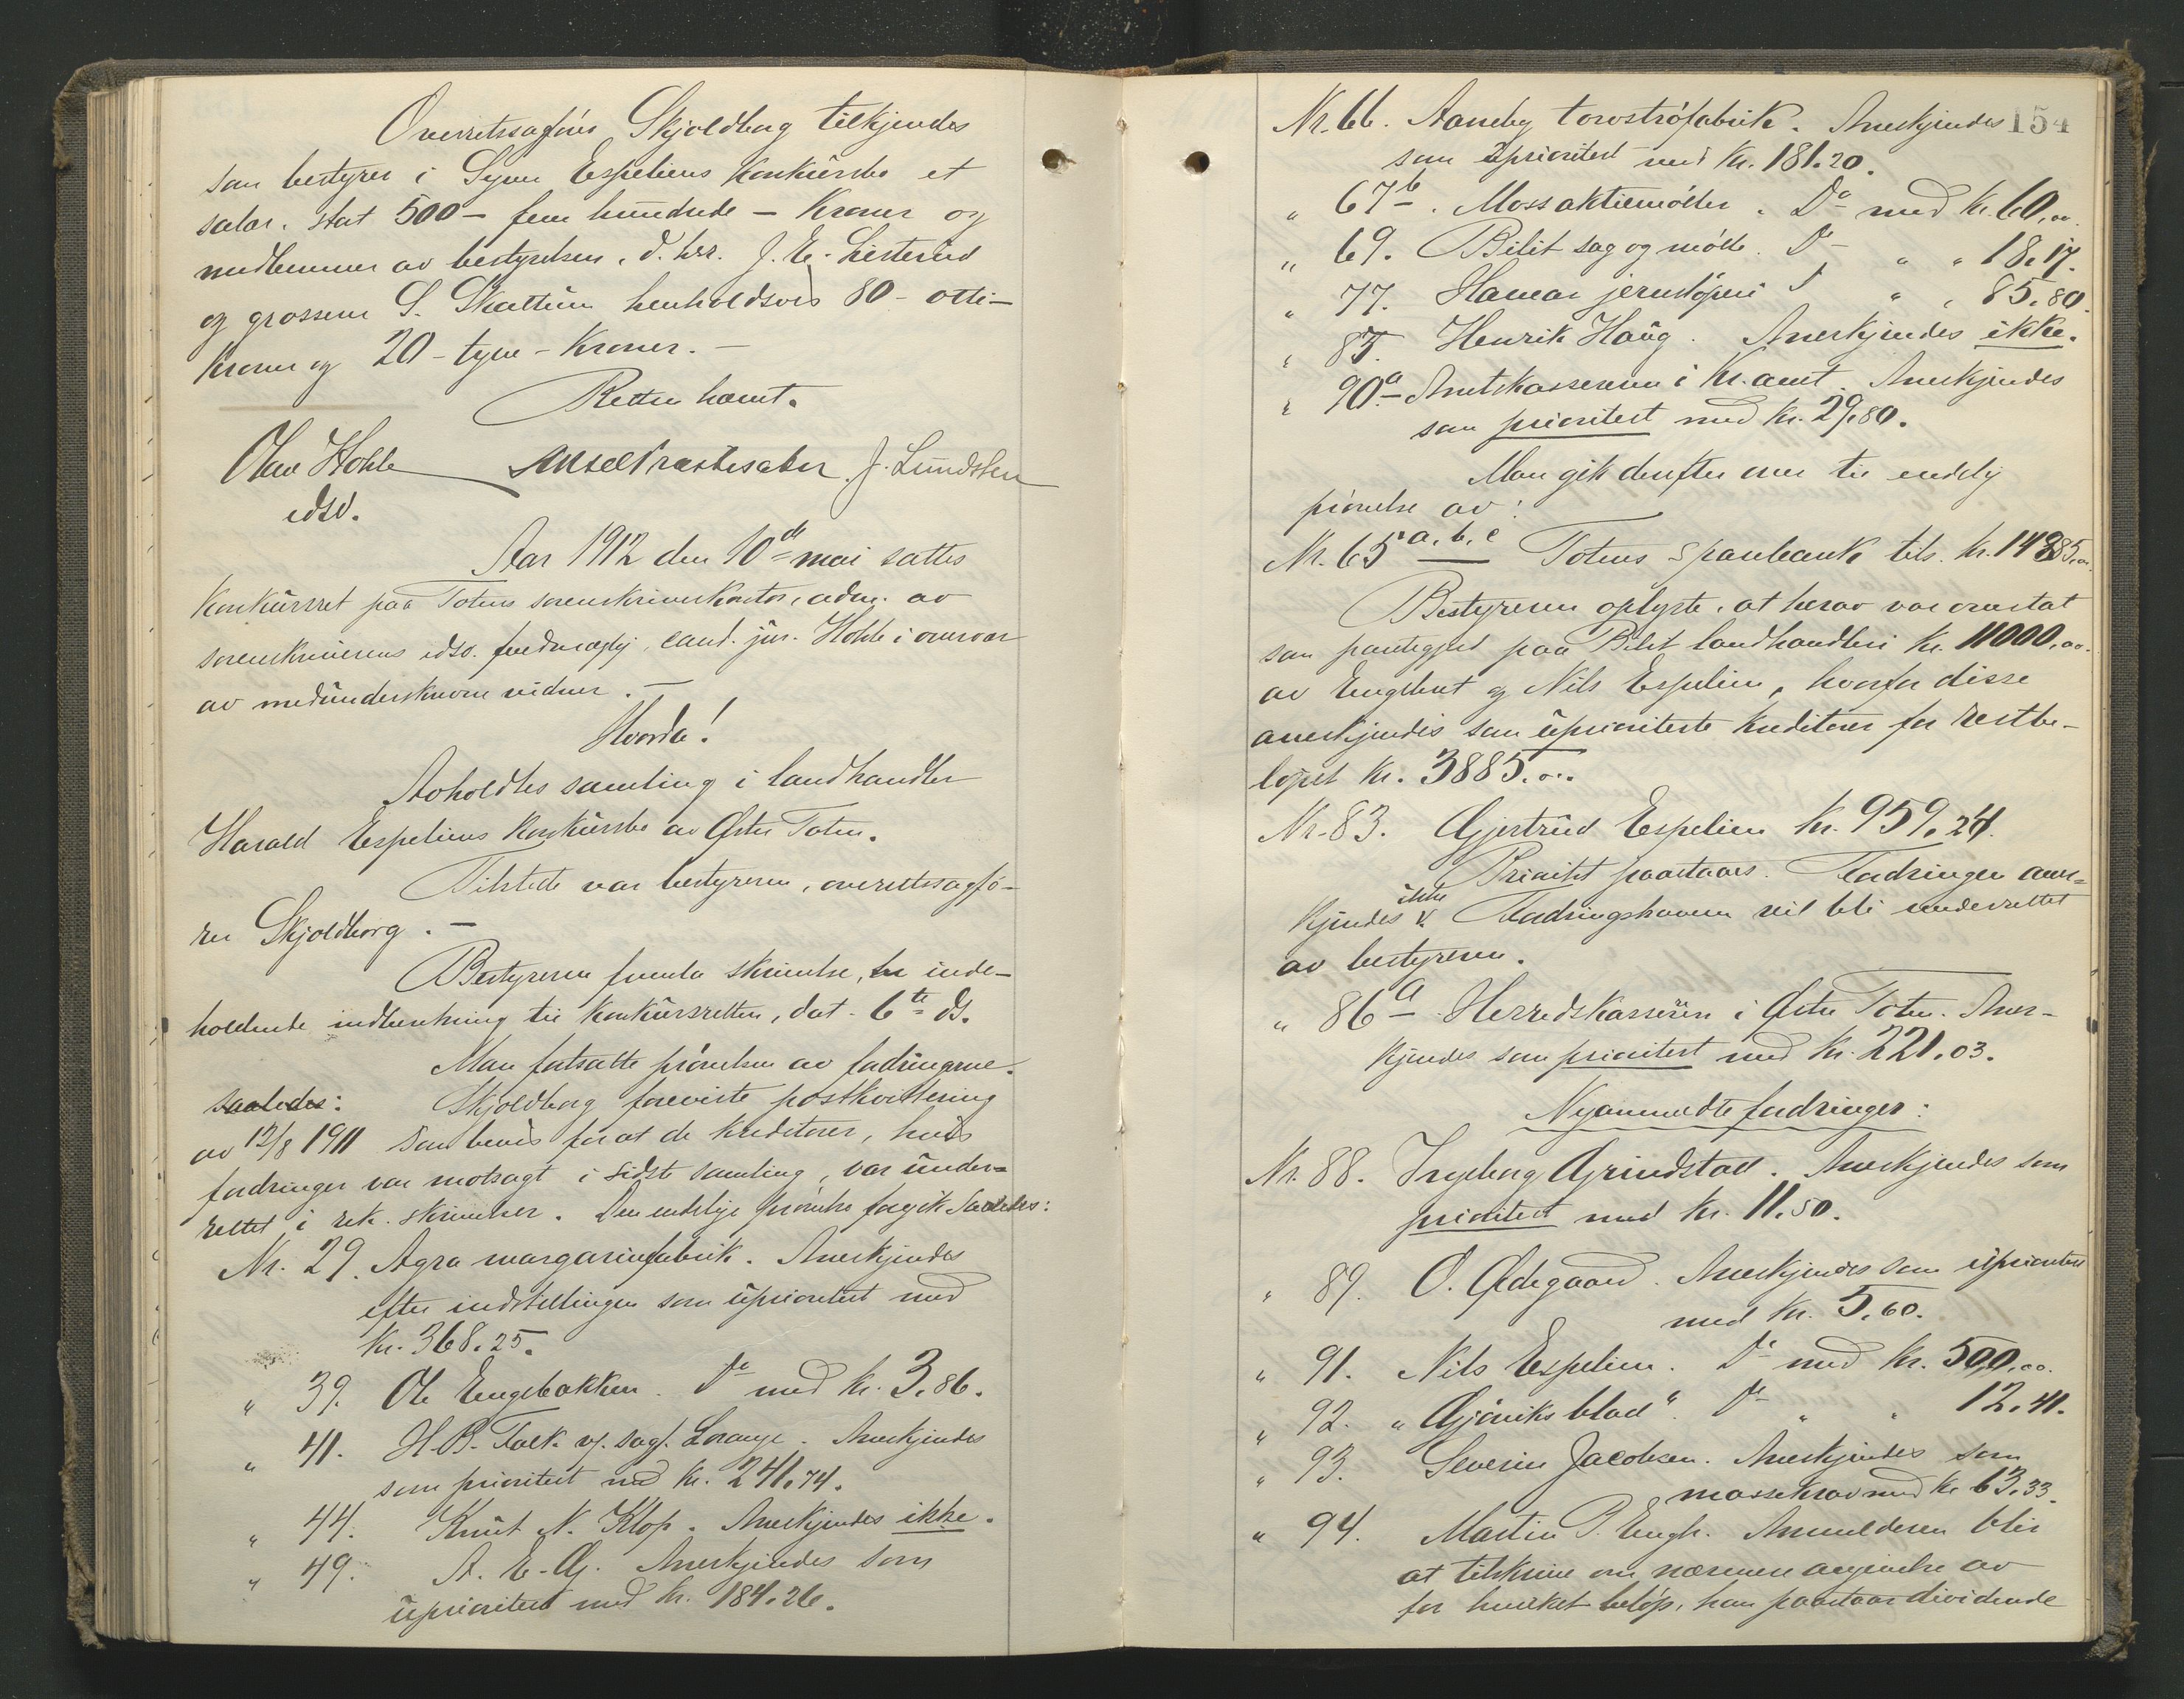 Overretssagfører Skjoldborg tilkjendes
som bestyrer i Syver Espeliens konkursbo et
salær, stort 500 - fem hundrede - kroner og
medlemmer av bestyrelsen, d. hrr. J. E. Listerud
og grosserer S. Skattum henholdsvis 80 - otti -
kroner og 20 - tyve - kroner. -
Retten hævet.
Olav Hohle Aksel Præstesæter J. Lundsten
edsv.
Aar 1912 den 10de mai sattes
konkursret paa Totens sorenskriverkontor, adm. av
sorenskriverens edsv. fuldmægtig, cand. jur. Hohle i overvær
av medunderskrevne vidner. -
Hvorda!
Avholdtes samling i landhandler
Harald Espeliens konkursbo av Østre Toten.
Tilstede var bestyreren, overretssagfø-
rer Skjoldborg. -
Bestyreren fremla skrivelse, inde-
holdende indberetning til konkursretten, dat. 6te ds.
Man fortsatte prøvelsen av fordringerne.
saaledes: Skjoldborg foreviste postkvittering
av 12/8 1911 som bevis for at de kreditorer, hvis
fordringer var motsagt i sidste samling, var under-
rettet i rek. skrivelser. Den endelige prøvelse foregik saaledes:
Nr. 29. Agra margarinfabrik. Anerkjendes
efter indstillingen som uprioritert med
kr. 368.25.
" 39. Ole Engebakken. Do med kr. 3.86.
" 41. H. B. Falk v/ sagf. Lorange. Anerkjendes
som prioritert med kr. 241.74.
" 44. Knut N. Klop. Anerkjendes ikke.
" 49. A. E. G. Anerkjendes som
uprioritert med kr. 184.26.
154
Nr. 66. Aaneby torvstrøfabrik. Anerkjendes
som uprioritert med kr. 181.20.
" 67b. Moss aktiemøller. Do med kr. 60.00.
" 69. Bilit sag og mølle. Do " " 18.17.
" 77. Hamar jernstøperi Do " " 85.80.
" 87. Henrik Haug. Anerkjendes ikke.
" 90a Amtskassereren i Kr. amt. Anerkjendes
som prioritert med kr. 29.80.
Man gik derefter over til endelig
prøvelse av:
Nr. 65 a, b, c Totens sparebank tils. kr. 14885.00.
Bestyreren oplyste, at herav var overtat
som pantegjeld paa Bilit landhandleri kr. 11000.00.
av Engebret og Nils Espelien, hvorfor disse
anerkjendes som uprioriterte kreditorer for restbe-
løpet kr. 3885.00.
Nr. 83. Gjertrud Espelien kr. 959.24.
Prioritet paastaaes. Fordringen aner-
kjendes ikke. Fordringshaveren vil bli underrettet
av bestyreren.
" 86a Herredskassereren i Østre Toten. Aner-
kjendes som prioritert med kr. 221.03.
Nyanmeldte fordringer:
Nr. 88. Ingeborg Grindstad. Anerkjendes som
prioritert med kr. 11.50.
" 89. O. Ødegaard. Anerkjendes som uprioritert
med kr. 5.60.
" 91. Nils Espelien. Do med kr. 500.00.
" 92. "Gjøviks blad". Do " " 12.41.
" 93. Severin Jacobsen. Anerkjendes som
massekrav med kr. 63.33.
" 94. Martin P. Engh. Anmelderen blir
at tilskrive om nærmere angivelse av
for hvilket beløp, han paastaar dividende